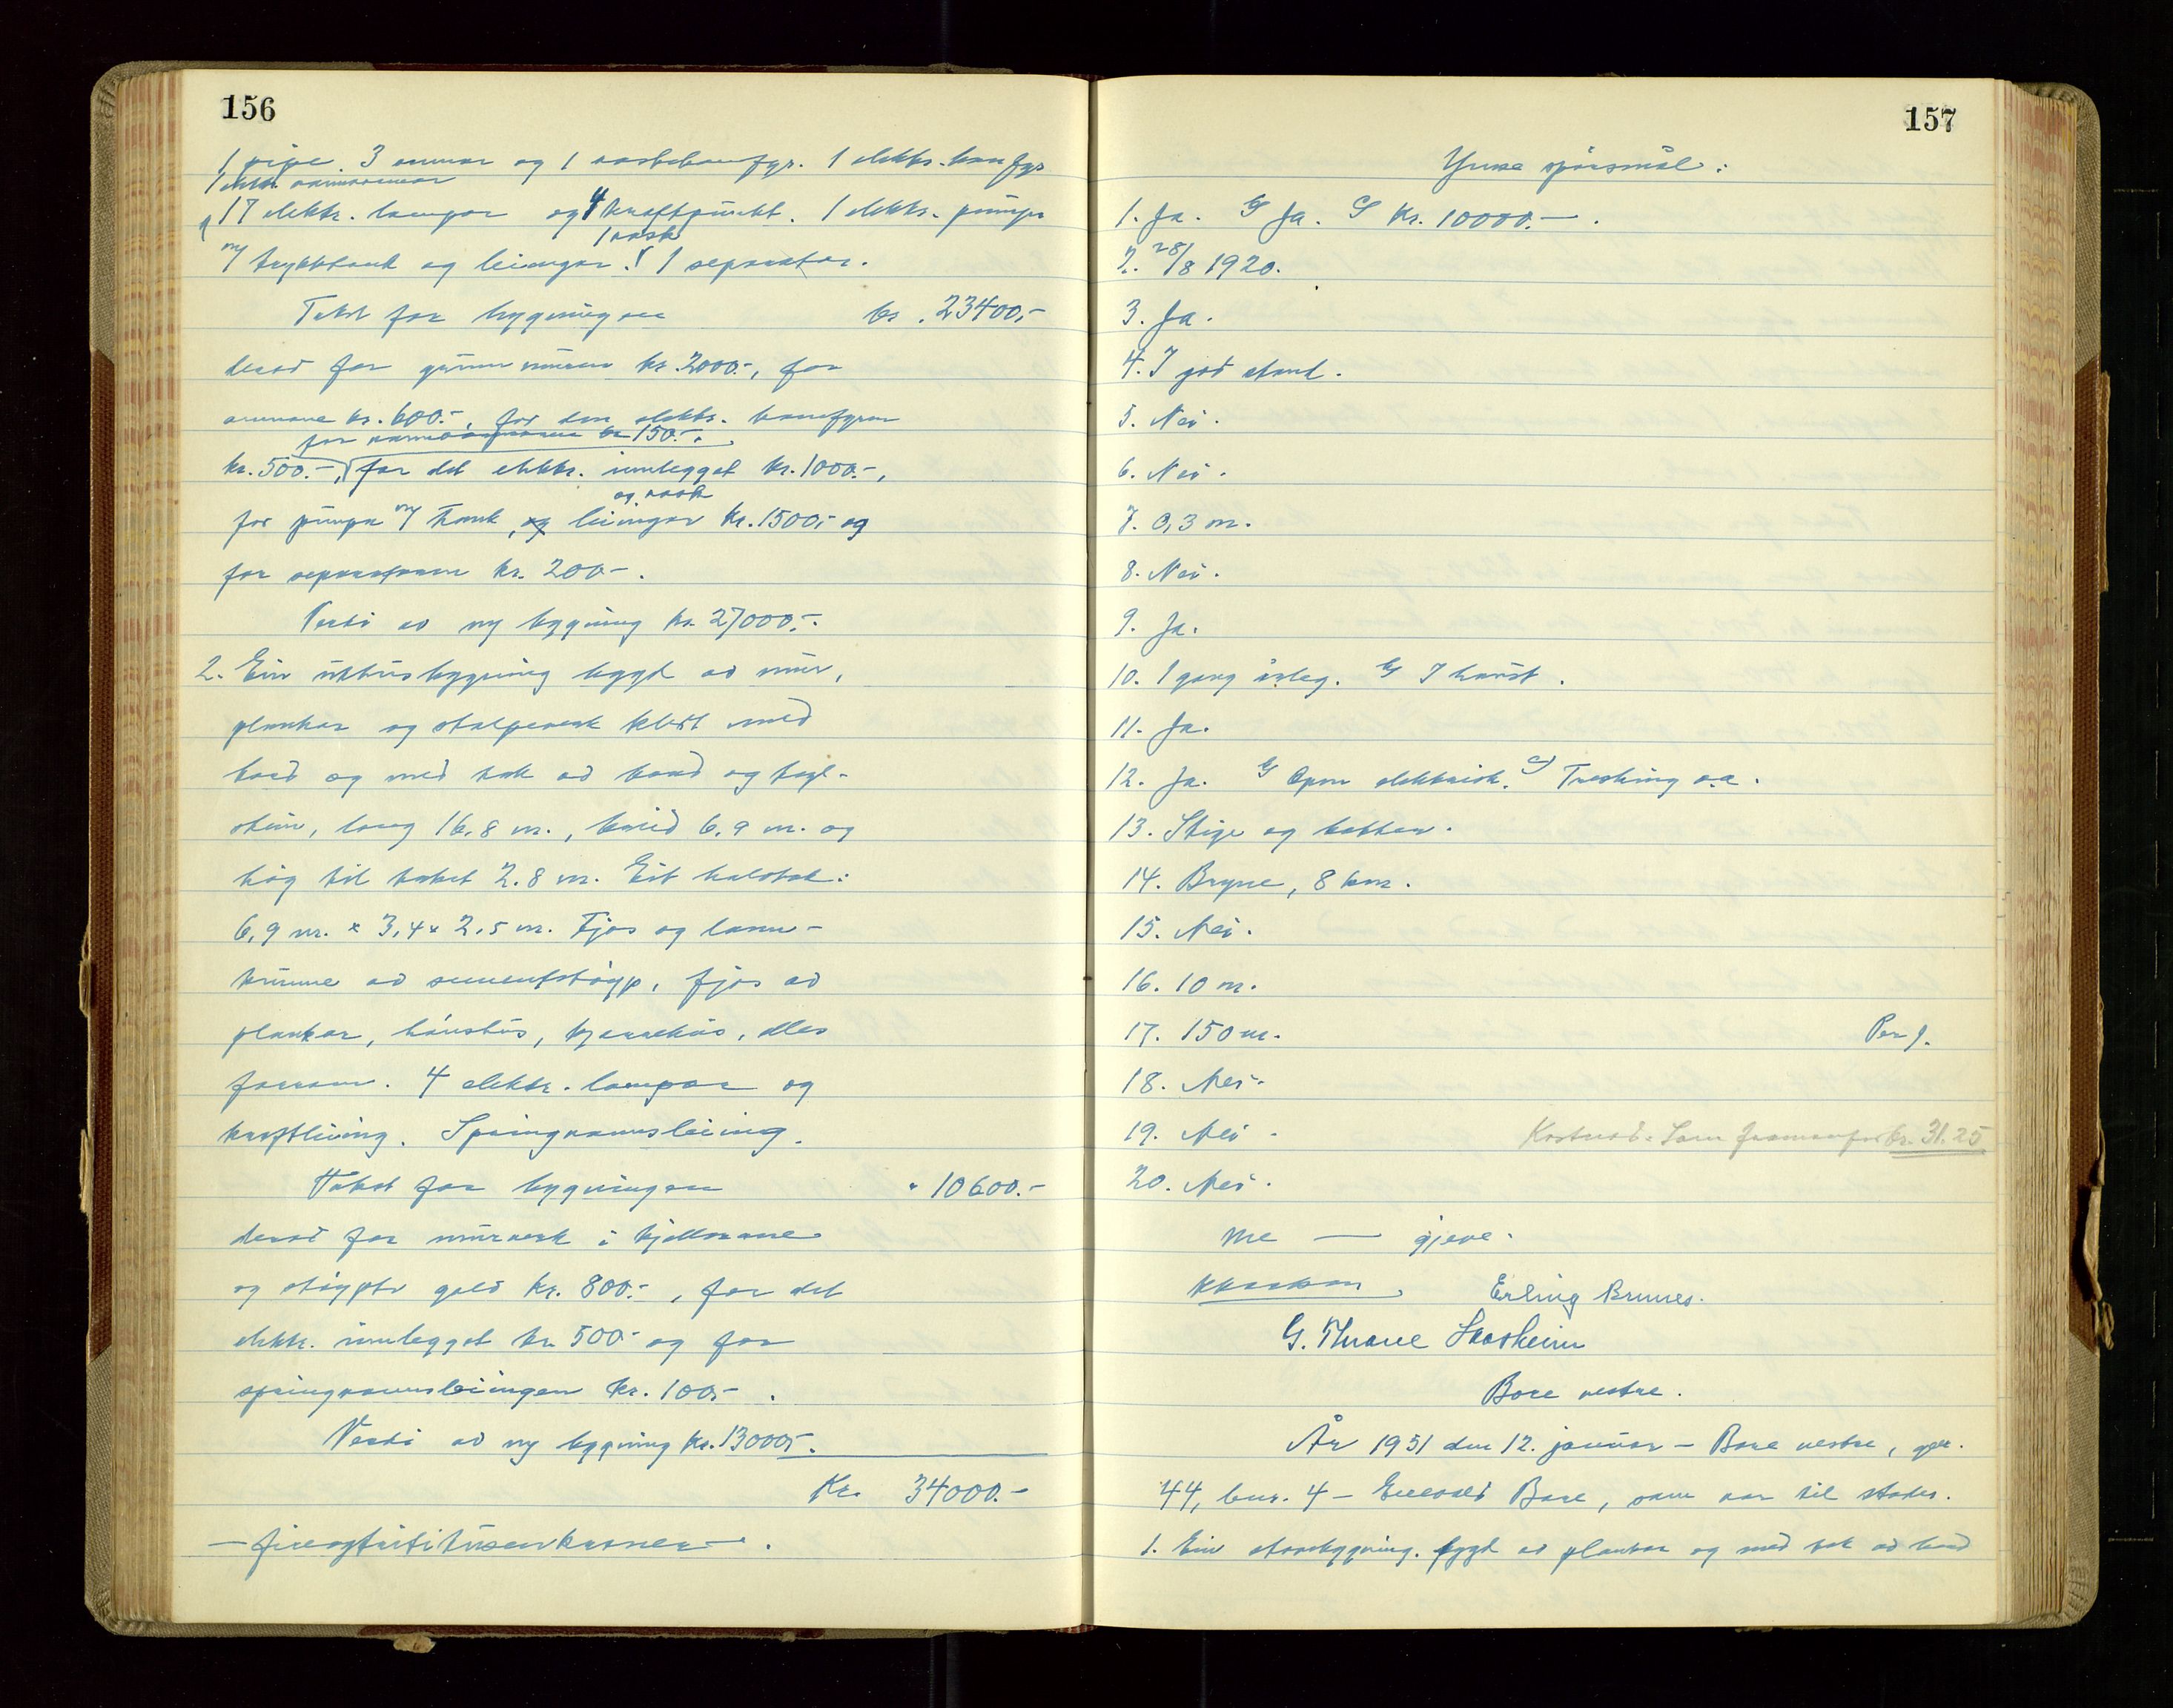 156
1 pipe, 3 omnar og 1 vaskekomfyr. 1 elektr. komfyr
1 elektr.
17 elektr. lampar og 4 kraftpunkt. 1 elektr. pumpe
1 vask
m/ trykktank og leiingar. 1 separator.
Takst for bygningen kr. 23400,-
derav for grunnmuren kr. 2000.-, for
omnane kr. 600.-, for den elektr. komfyren
for kr 150.-,
kr. 500.-, for det elektr. innlegget kr. 1000.-,
og vask
for pumpa m/ tank, og leiingar kr. 1500,- og
for separatoren kr. 200-.
Verdi av ny bygning kr. 27000.-.
2. Ein uthusbygning bygd av mur,
plankar og stolpeverk kledt med
bord og med tak av bord og tegl-
stein, lang 16,8 m., breid 6,9 m. og
høg til taket 2.8 m. Eit halvtak:
6,9 m. x 3,4 x 2,5 m. Fjos og land-
kumme av sementstøyp, fjos av
plankar, høushus, kjerrehus, elles
forrom. 4 elektr. lampar og
kraftleiing. Springvannsleiing.
Takst for bygningen " 10600.-
derav for murverk i kjellarane
og støypte golv kr. 800.-, for det
elektr. innlegget kr. 500- og for
springvannsleiingen kr. 100,- .
Verdi av ny bygning kr. 13000,-.
Kr. 34000.-
- fireogtrettitusenkroner - .
157
Ymse spørsmål:
1. Ja. b/ Ja. c/ Kr. 10000.- .
2. 28/8 1920.
3. Ja.
4. I god stand.
5. Nei.
6. Nei.
7. 0,3 m.
8. Nei.
9. Ja.
10. 1 gong årleg. b/ I haust.
11. Ja.
12. Ja. b/ Open elektrisk. c/ Tresking o.a.
13. Stige og bøtter.
14. Bryne, 8 km.
15. Nei.
16. 10 m.
17. 150 m. Per J.
18. Nei.
19. Nei. Kostnad: Som framanfor kr. 31.25
20. Nei.
Me — gjeve.
Erling Brunes.
G. Thrane Skasheim
Bore vestre.
År 1951 den 12. januar - Bore vestre, gnr.
44, bnr. 4 - Enevald Bore, som var til stades.
1. Ein stovebygning. bygd av plankar og med tak av bord